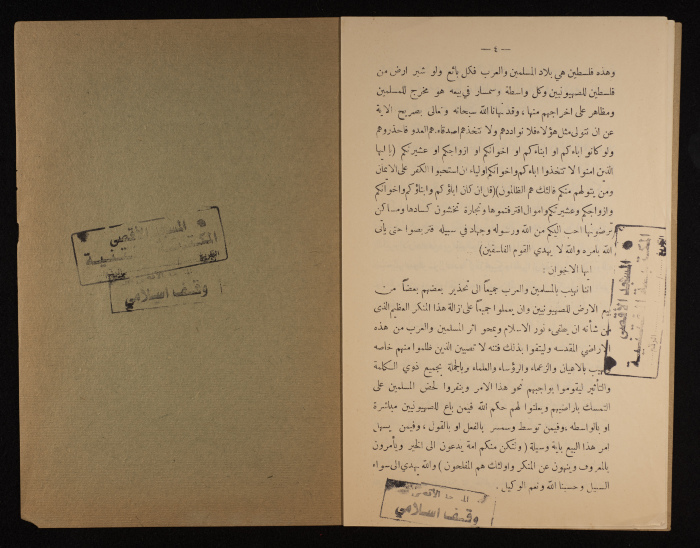 — ٤ —
وهذه فلسطين هي بلاد المسلمين والعرب فكل بائع ولو شبر ارض من
فلسطين للصهيونيين وكل واسطة وسمسار في بيعه هو مخرج للمسلمين
ومظاهر على اخراجهم منها، وقد نهانا الله سبحانه وتعالى بصريح الآية
عن ان نتولى مثل هؤلاء فلا نواددهم ولا نتخذهم اصدقاء هم العدو فاحذروهم
ولو كانوا اباءكم او ابناءكم او اخوانكم او ازواجكم او عشيرتكم (يا ايها
الذين امنوا لا تتخذوا اباءكم واخوانكم اولياء ان استحبوا الكفر على الايمان
ومن يتولهم منكم فاولئك هم الظالمون) (قل ان كان اباؤكم وابناؤكم واخوانكم
وازواجكم وعشيرتكم واموال اقترفتموها وتجارة تخشون كسادها ومساكن
ترضونها احب اليكم من الله ورسوله وجهاد في سبيله فتربصوا حتى يأتي
الله بامره والله لا يهدي القوم الفاسقين)
ايها الاخوان:
اننا نهيب بالمسلمين والعرب جميعاً الى تحذير بعضهم بعضاً من
بيع الارض للصهيونيين وان يعملوا جميعاً على ازالة هذا المنكر العظيم الذي
من شأنه ان يطفىء نور الاسلام ويمحو اثر المسلمين والعرب من هذه
الاراضي المقدسه وليتقوا بذلك فتنه لا تصيبن الذين ظلموا منهم خاصه
ونهيب بالاعيان والزعماء والرؤساء والعلماء وبالجملة بجميع ذوي الكلمة
والتأثير ليقوموا بواجبهم نحو هذا الامر وينفروا لحض المسلمين على
التمسك باراضيهم ويعلنوا لهم حكم الله فيمن باع للصهيونيين مباشرة
او بالواسطه، وفيمن توسط وسمسر بالفعل او بالقول، وفيمن يسهل
امر هذا البيع باية وسيلة (ولتكن منكم امة يدعون الى الخير ويأمرون
بالمعروف وينهون عن المنكر واولئك هم المفلحون) والله يهدي الى سواء
السبيل وحسبنا الله ونعم الوكيل.
المسجد الأقصى
وقف اسلامي
المسجد الأقصى
وقف اسلامي